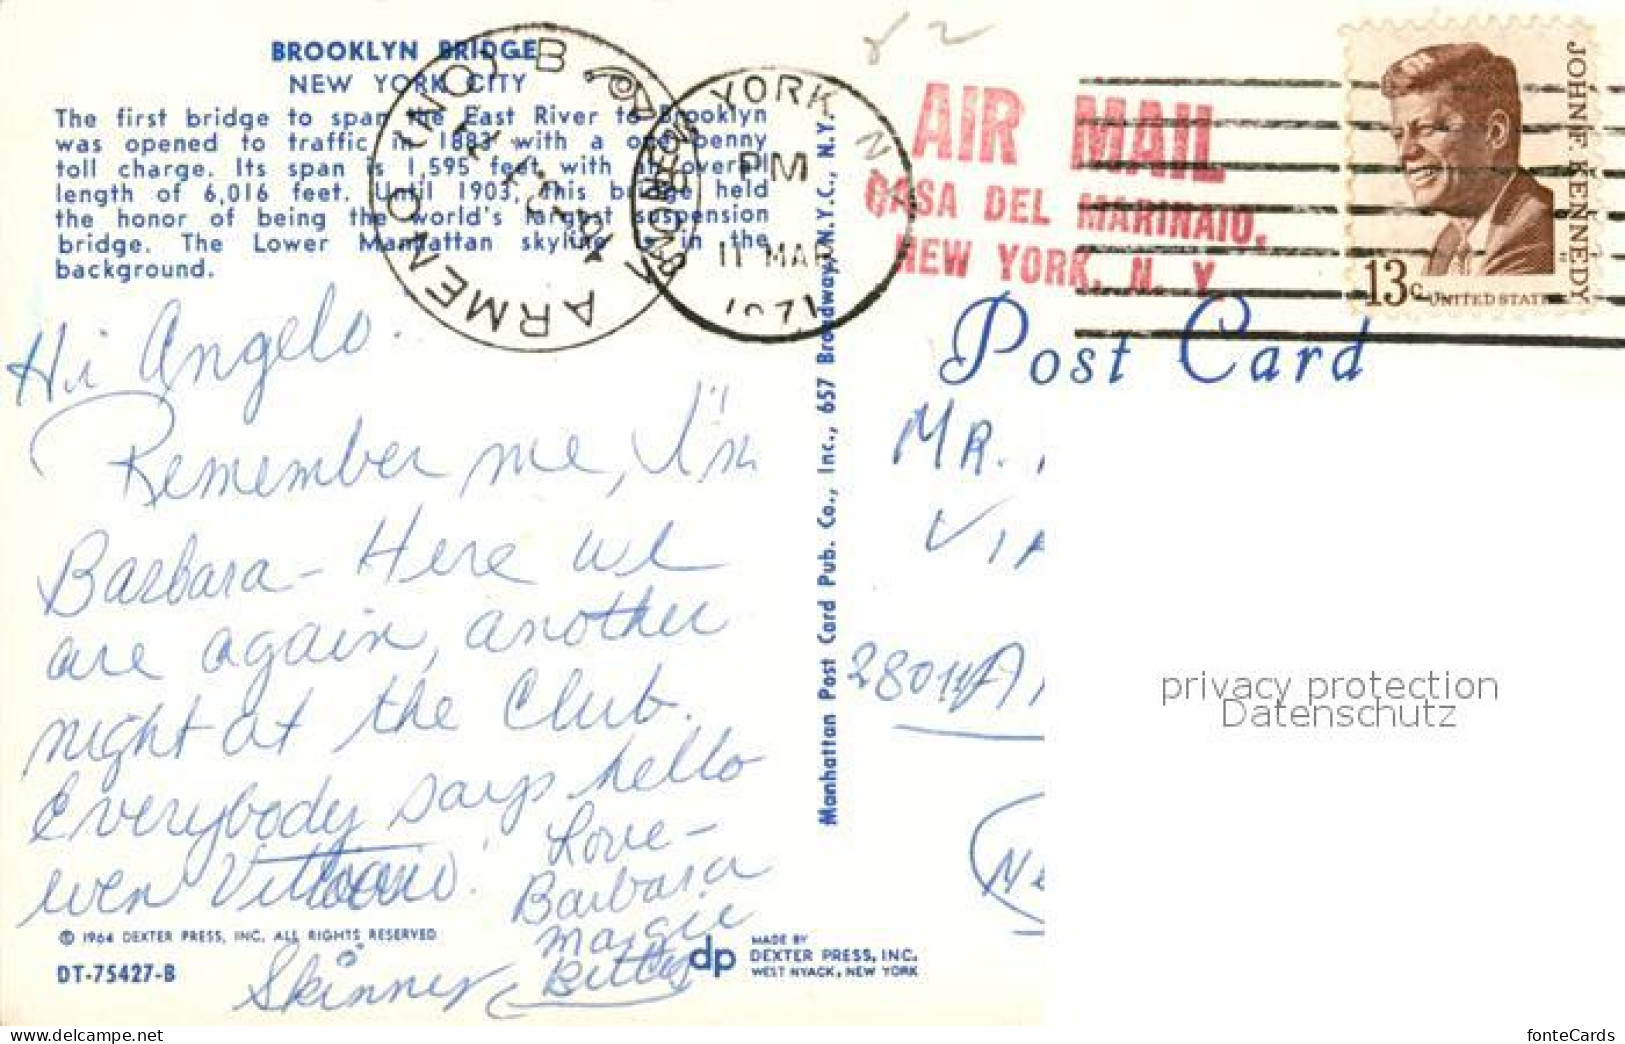 BROOKLYN BRIDGE
NEW YORK CITY
The first bridge to span the East River to Brooklyn
was opened to traffic in 1883 with a one penny
toll charge. Its span is 1,595 feet with an overall
length of 6,016 feet. Until 1903, this bridge held
the honor of being the world's largest suspension
bridge. The Lower Manhattan skyline is in the
background.
Hi Angelo.
Remember me, I'm
Barbara - Here we
are again, another
night at the Club.
Everybody says hello
even Vittorio!
Love -
Barbara
Margie
Skinner
© 1964 DEXTER PRESS, INC. ALL RIGHTS RESERVED
DT-75427-B
dp
MADE BY
DEXTER PRESS, INC.
WEST NYACK, NEW YORK
Manhattan Post Card Pub. Co., Inc., 657 Broadway, N.Y.C., N.Y.
ARMENO (NO) B
YORK N
PM
11 MAR
AIR MAIL
CASA DEL MARINAIO,
NEW YORK, N. Y.
JOHN F. KENNEDY
13c UNITED STATES
Post Card
MR.
VIA
28011 A
privacy protection
Datenschutz
DELCAMPE.NET
fonteCards